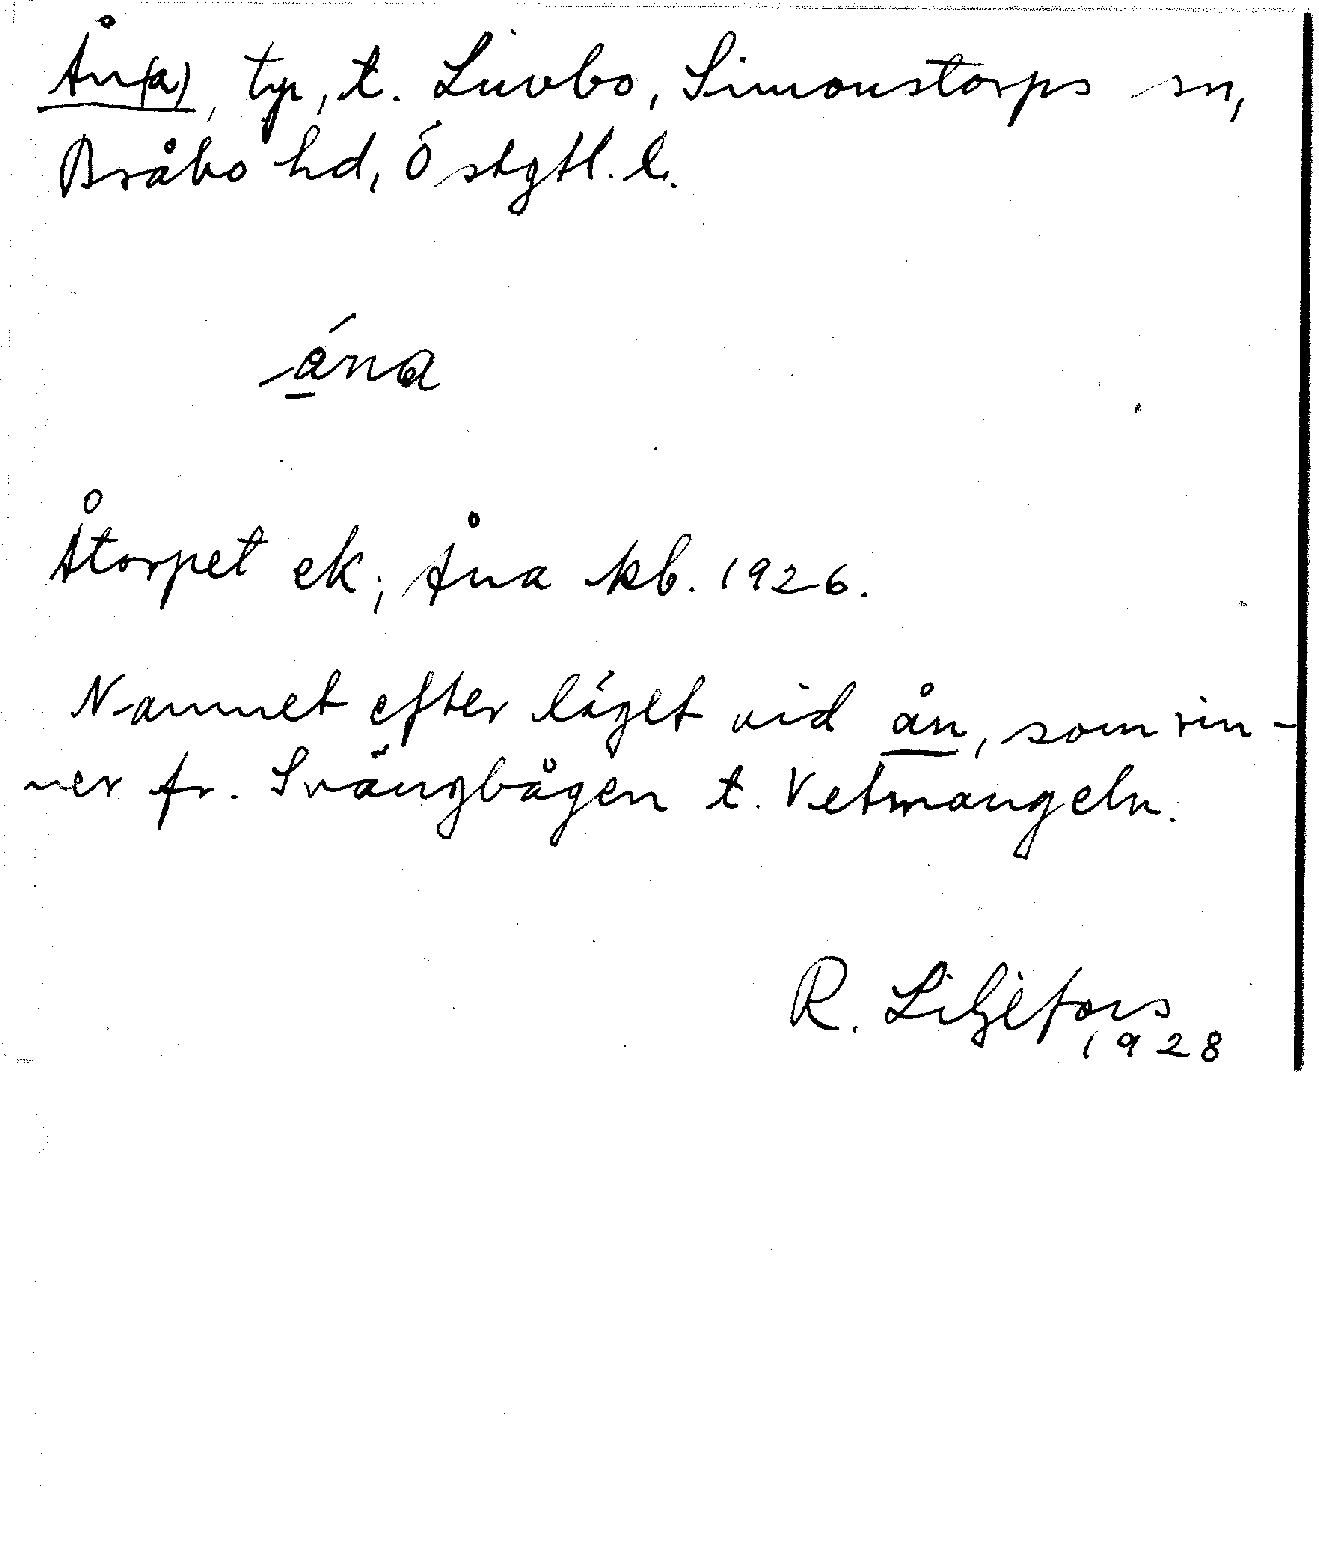 Ån(a), tp, t. Luvbo, Simonstorps sn,
Bråbo hd, Östgtl. l.
ána
Åtorpet ek; Åna kb. 1926.
Namnet efter läget vid ån, som rin-
ner fr. Svängbågen t. Vetmangeln.
R. Liljefors
1928